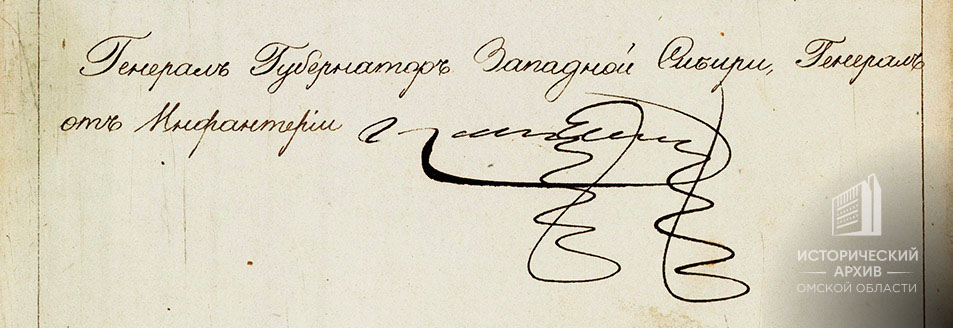 Генералъ Губернаторъ Западной Сибири, Генералъ
отъ Инфантеріи
ИСТОРИЧЕСКИЙ
АРХИВ
ОМСКОЙ ОБЛАСТИ